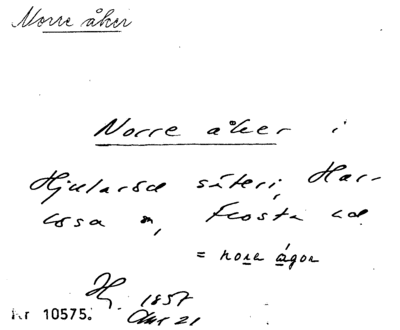 Norre åker
Norre åker i
Hjularöd säteri, Har-
lösa sn, Frosta hd.
= nora ågor
Hy. 1857
Akt 21
Nr 10575.